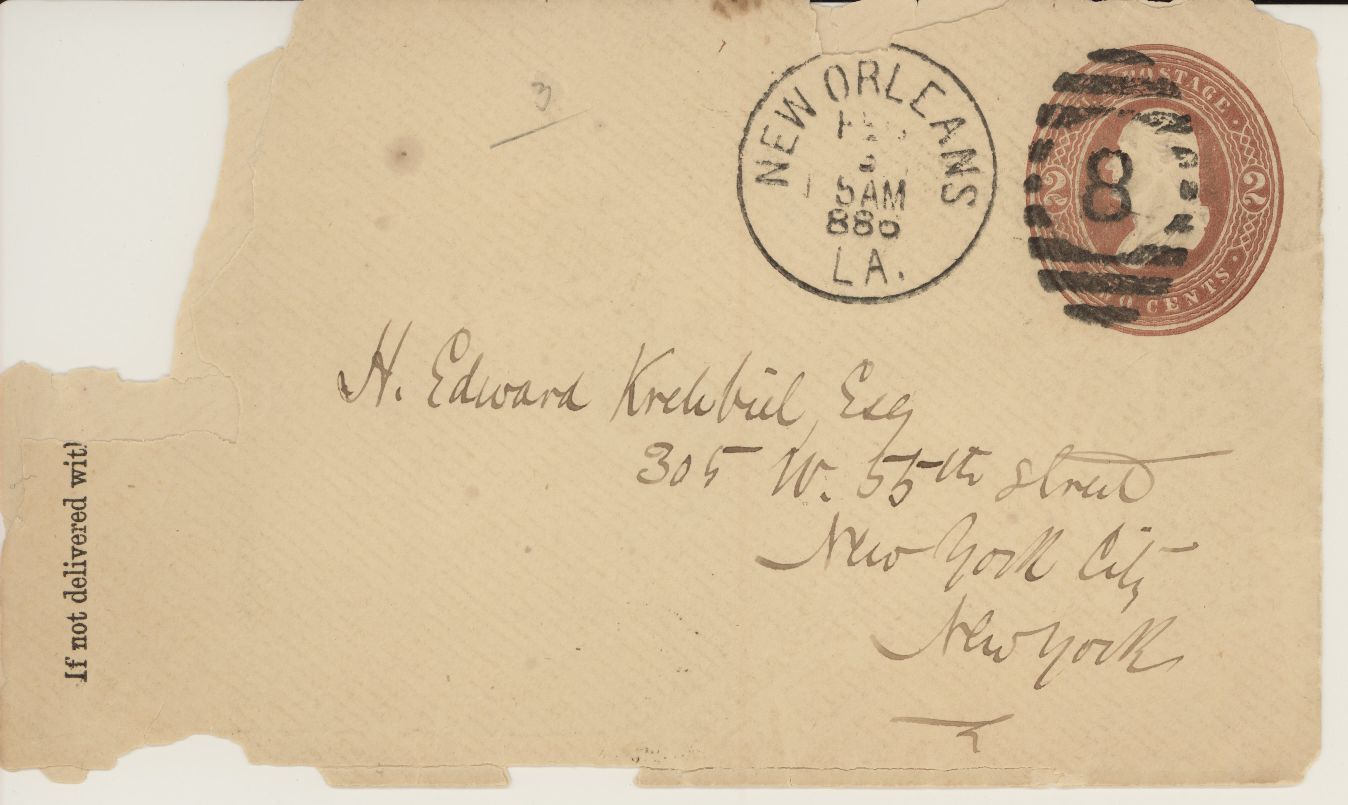 3
NEW ORLEANS
5 AM
886
LA.
8
POSTAGE
2 2
CENTS
H. Edward Krehbiel, Esq
305 W. 55th Street
New York City
New York
If not delivered wit